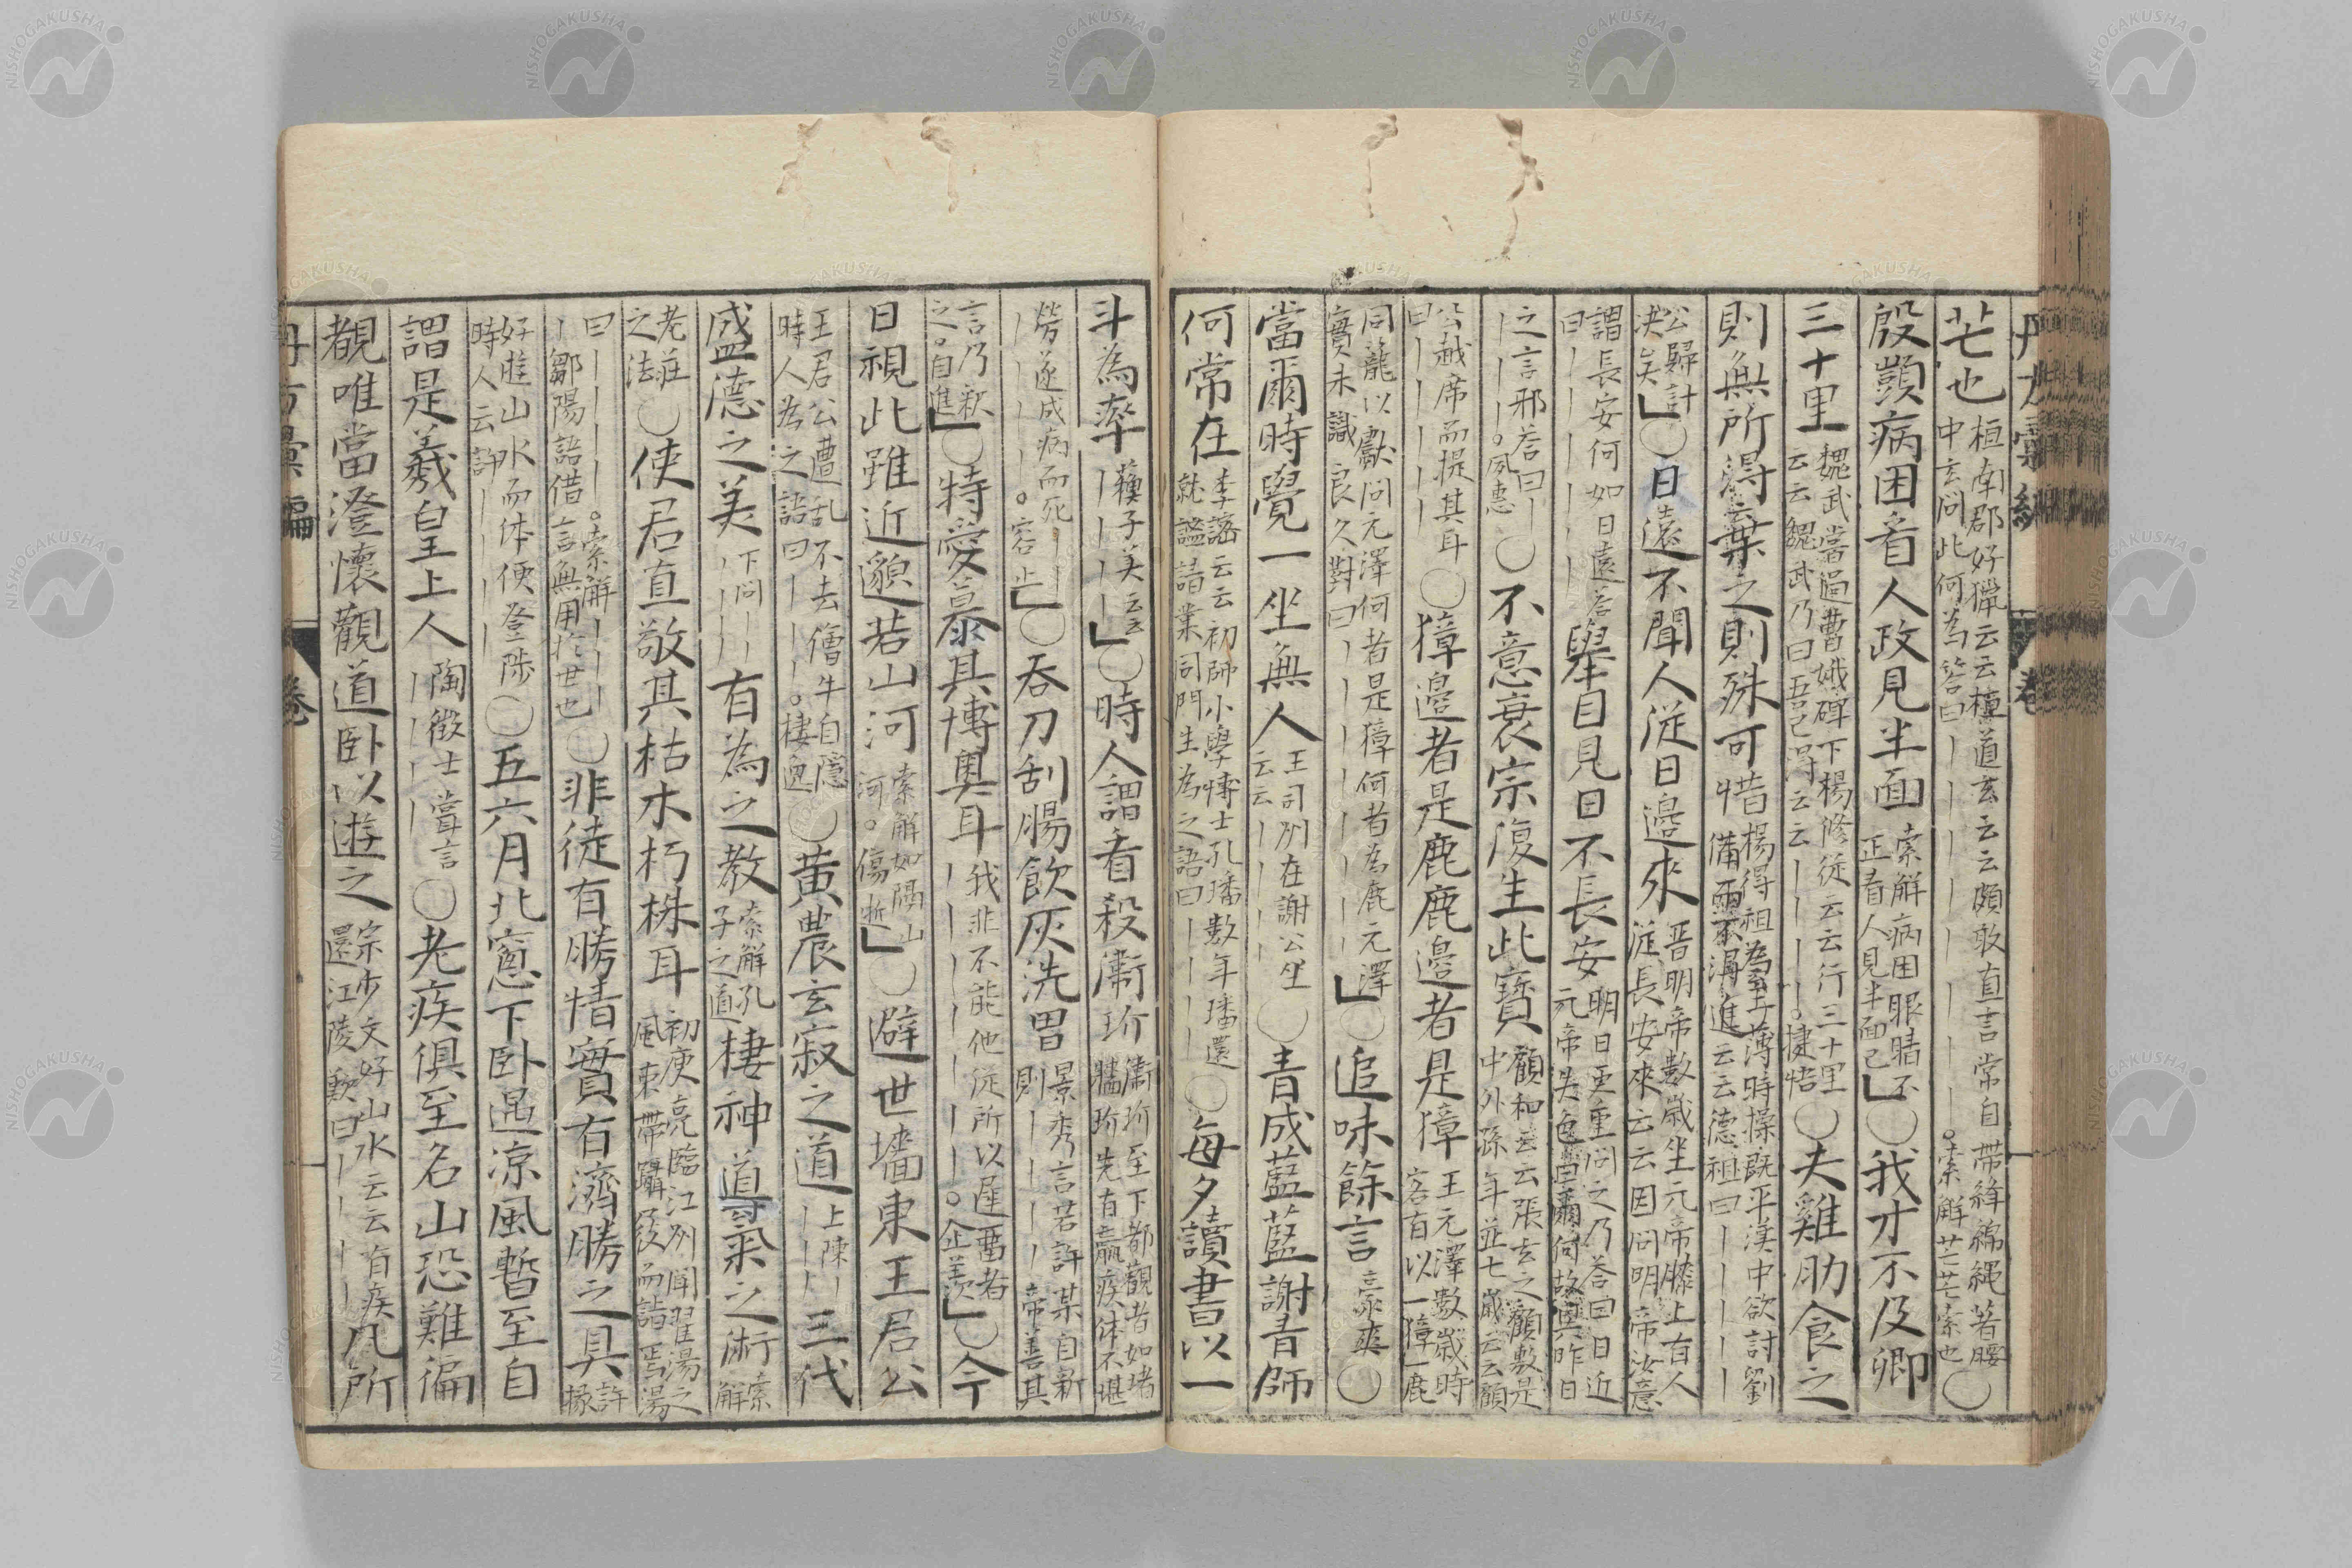 芒也 桓南郡好獵云云桓道玄云云頗敢直言常自帶絳綿繩著腰
中玄問此何為答曰――――――。索解芒芒索也 〇
殷顗病困看人政見半面 索解病困眼睛不
正看人見半面已」〇我才不及卿
三十里 魏武嘗過曹娥碑下楊修從云云行三十里
云云魏武乃曰吾已得云云――――。捷悟 〇夫雞肋食之
則無所得棄之則殊可惜 楊得祖為主簿時操既平漢中欲討劉
備而不得進云云德祖曰――――
公歸計
決矣」〇日遠不聞人從日邊來 晋明帝數歲坐元帝膝上有人
從長安來云云因問明帝汝意
謂長安何如日遠答
曰――――― 舉目見日不長安 明日更重問之乃答曰日近
元帝失色曰爾何故異昨日
之言邪答曰―
―――。夙惠 〇不意衰宗復生此寶 顧和云云張玄之顧敷是
中外孫年並七歲云云顧
公越席而提其耳
曰――――― 〇獐邊者是鹿鹿邊者是獐 王元澤數歲時
客有以一獐一鹿
同籠以獻問元澤何者是獐何者為鹿元澤
實未識良久對曰―――――」〇追味餘言 豪爽 〇
當爾時覺一坐無人 王司州在謝公坐
云云――― 〇青成藍藍謝青師
何常在 李謐云云初師小學博士孔璠數年璠還
就謐請業同門生為之語曰―――― 〇每夕讀書以一
斗為率 蘓子美云云
――――」〇時人謂看殺衞玠 衞玠至下都觀者如堵
牆玠先有羸疾体不堪
勞遂成病而死―
―――――。容止」〇吞刀刮腸飲灰洗胃 景秀言若許某自新
則――――帝善其
言乃釈
之。自進」〇特愛慕其博奧耳 我非不能他從所以遲留者
――――――。企羡」〇今
日視此雖近邈若山河 索解如隔山
河。傷逝」〇避世墻東王君公
王君公遭乱不去儈牛自隱
時人為之語曰―――。棲逸 〇黄農玄寂之道 上陳―
――― 三代
盛德之美 下問――
―――― 有為之教 索解孔
子之道 棲神導氣之術 索
解
老莊
之法 〇使君直敬其枯木朽株耳 初庾亮臨江州聞翟湯之
風束帶躡屐而詣焉湯
曰――――。索解――
―鄒陽語借言無用於世也 〇非徒有勝情實有濟勝之具 許
掾
好遊山水而体便登陟
時人云許――――― 〇五六月北窻下卧遇凉風暫至自
謂是羲皇上人 陶徴士嘗言
―――― 〇老疾俱至名山恐難徧
覩唯當澄懷觀道卧以遊之 宗少文好山水云云有疾
還江陵歎曰―――― 凡所